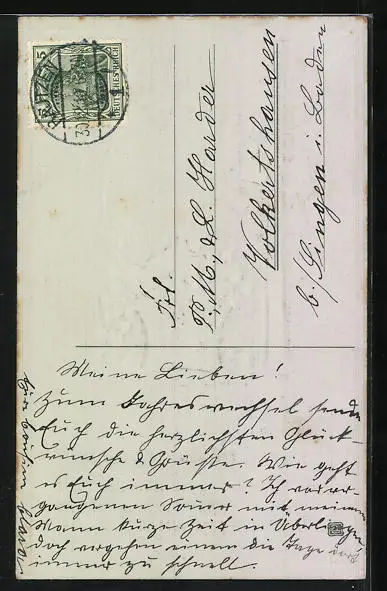 5
DEUTSCHES REICH
30.12.
Frl.
P., M., & L. Harder
Volkertshausen
b/Singen i. Baden
Meine Lieben!
Zum Jahreswechsel sende
Euch die herzlichsten Glück-
wünsche & Grüsse. Wie geht
es Euch immer? Ich war vor-
gangenen Somer mit meinem
Mann kurze Zeit in Überlingen
doch vergehen einem die Tage dort
immer zu schnell.